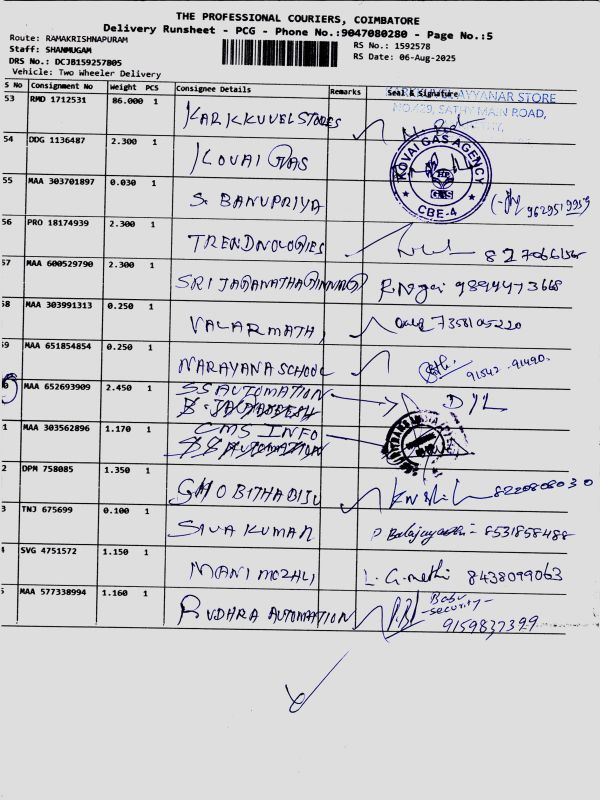 THE PROFESSIONAL COURIERS, COIMBATORE
Delivery Runsheet - PCG - Phone No.:9047080280 - Page No.:5
Route: RAMAKRISHNAPURAM
Staff: SHANMUGAM
DRS No.: DCJB159257805
Vehicle: Two Wheeler Delivery
RS No.: 1592578
RS Date: 06-Aug-2025
S No Consignment No Weight PCS Consignee Details Remarks Seal & Signature
AYYANAR STORE
NO.429, SATHY MAIN ROAD,
53 RMD 1712531 86.000 1 KARIKKUVEL STORES
54 DDG 1136487 2.300 1 KOVAI GAS
KOVAI GAS AGENCY
GAS
CBE-4
55 MAA 303701897 0.030 1 S. BANUPRIYA
56 PRO 18174939 2.300 1 TRENDNOLOGIES
57 MAA 600529790 2.300 1 SRI JAGANATHA GINNING 9894473668
58 MAA 303991313 0.250 1 VALARMATHI 7358105220
59 MAA 651854854 0.250 1 NARAYANA SCHOOL 91542 91490
MAA 652693909 2.450 1 SS AUTOMATION
1 MAA 303562896 1.170 1 CMS INFO
2 DPM 758085 1.350 1 8220808030
3 TNJ 675699 0.100 1 SIVA KUMAR 8531858488
4 SVG 4751572 1.150 1 MANIMOZALI 8438099063
5 MAA 577338994 1.160 1 RUDHRA AUTOMATION Babu
-security-
9159837399